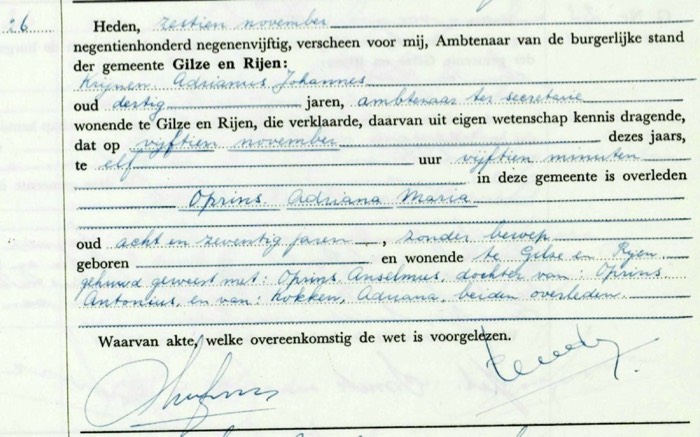 26 Heden, zestien november
negentienhonderd negenenvijftig, verscheen voor mij, Ambtenaar van de burgerlijke stand
der gemeente Gilze en Rijen:
Krijnen Adrianus Johannes
oud dertig jaren, ambtenaar ter secretarie
wonende te Gilze en Rijen, die verklaarde, daarvan uit eigen wetenschap kennis dragende,
dat op vijftien november dezes jaars,
te elf uur vijftien minuten
in deze gemeente is overleden
Oprins Adriana Maria
oud acht en zeventig jaren, zonder beroep
geboren en wonende te Gilze en Rijen
gehuwd geweest met: Oprins Anselmus, dochter van: Oprins
Antonius, en van: Kokken, Adriana, beiden overleden.
Waarvan akte, welke overeenkomstig de wet is voorgelezen.